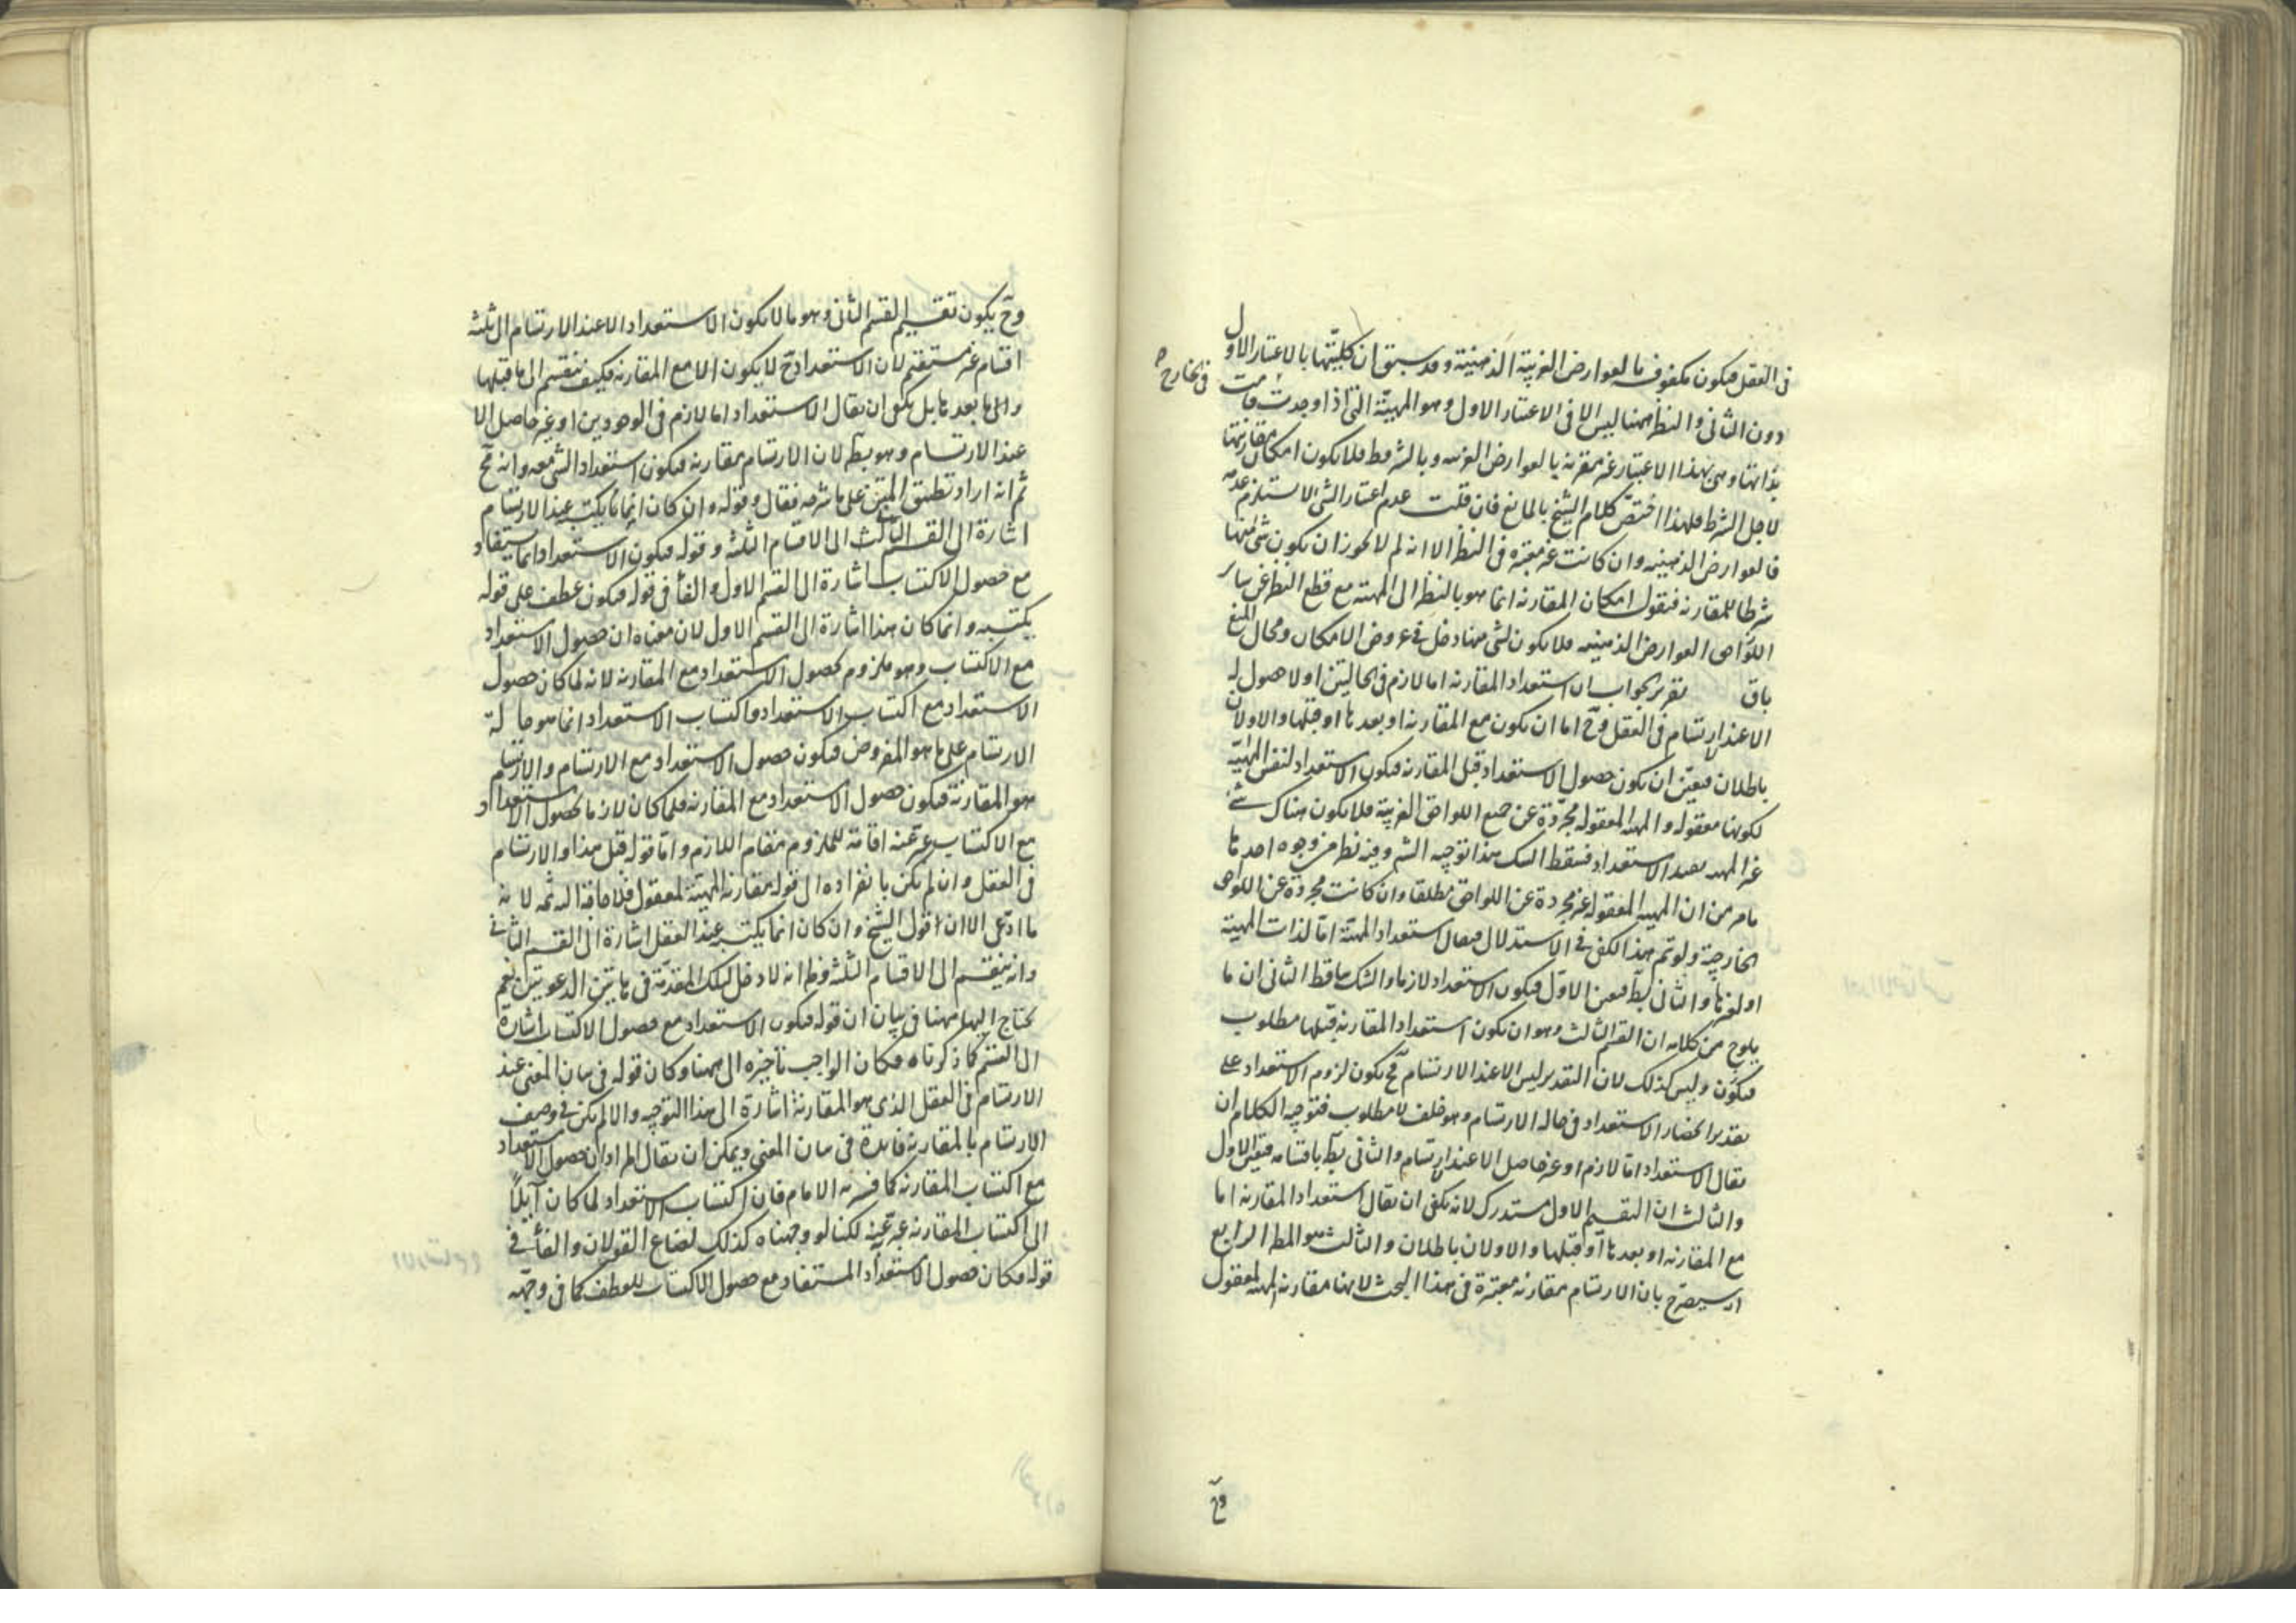 فى العقل فيكون مكفوفه بالعوارض الغريبة الذهنية وقد سبق ان كليتها بالاعتبار الاول
دون الثانى والنظر ههنا ليس الا فى الاعتبار الاول وهو المهية التى اذا وجدت فى الخارج قامت
بذاتها وهى بهذا الاعتبار غير مقترنة بالعوارض الغريبه وبالشروط فلا يكون امكان مقارنتها
لاجل الشرط فلهذا اختص كلام الشيخ بالمانع فان قلت عدم اعتبار الشى لا يستلزم عدمه
فالعوارض الذهنيه وان كانت غير معتبره فى النظر الا انه لم لا يجوز ان يكون شى منها
شرطا للمقارنه فنقول امكان المقارنه انما هو بالنظر الى المهية مع قطع النظر عن ساير
اللواحق العوارض الذهنيه فلا يكون لشى منها دخل فى عروض الامكان ومحال المنع
باق تقرير الجواب ان استعداد المقارنه اما لازم فى الحالتين او لا حصول له
الا عند ارتسام فى العقل وح اما ان يكون مع المقارنه او بعدها او قبلها والاولان
باطلان فتعين ان يكون حصول الاستعداد قبل المقارنه فيكون الاستعداد لنفس المهية
لكونها معقوله والمهية المعقوله مجردة عن جميع اللواحق الغريبة فلا يكون هناك شى
غير المهيه يفيد الاستعداد فسقط الشك هذا توجيه الشرح وفيه نظر من وجوه احدها
ما مر من ان المهية المعقوله غير مجردة عن اللواحق مطلقا وان كانت مجردة عن اللواحق
الخارجية ولو تم هذا لكفى فى الاستدلال فيقال استعداد المهية اما لذات المهية
او لغيرها والثانى بط فتعين الاول فيكون الاستعداد لازما والشك ساقط الثانى ان ما
يلوح من كلامه ان القسم الثالث وهو ان يكون استعداد المقارنه قبلها مطلوب
فيكون وليس كذلك لان التقدير ليس الا عند الارتسام فح يكون لزوم الاستعداد على
تقدير انحصار الاستعداد فى حاله الارتسام وهو خلف لا مطلوب فتوجيه الكلام ان
يقال الاستعداد اما لازم او غير حاصل الا عند ارتسام والثانى بط باقسامه فتعين الاول
والثالث ان التقسيم الاول مستدرك لانه يكفى ان يقال استعداد المقارنه اما
مع المقارنه او بعدها او قبلها والاولان باطلان والثالث هو المط الرابع
انه سيصرح بان الارتسام مقارنه معتبرة فى هذا البحث لانها مقارنه المهية لمعقول
وح
وح يكون تقسيم القسم الثانى وهو ما لا يكون الاستعداد الا عند الارتسام الى ثلثة
اقسام غير مستقيم لان الاستعداد ح لا يكون الا مع المقارنه فكيف ينقسم الى ما قبلها
والى ما بعدها بل يكفى ان يقال الاستعداد اما لازم فى الوجودين او غير حاصل الا
عند الارتسام وهو بط لان الارتسام مقارنه فيكون استعداد الشى معه وانه مح
ثم انه اراد تطبيق المتن على ما شرحه فقال وقوله وان كان انما يكتسبه عند الارتسام
اشارة الى القسم الثالث الى الاقسام الثلثه وقوله فيكون الاستعداد انما يستفاد
مع حصول الاكتساب اشارة الى القسم الاول والفأ فى قوله فيكون عطف على قوله
يكتسبه وانما كان هذا اشارة الى القسم الاول لان معناه ان حصول الاستعداد
مع الاكتساب وهو ملزوم لحصول الاستعداد مع المقارنه لانه لما كان حصول
الاستعداد مع اكتساب الاستعداد واكتساب الاستعداد انما هو حالة
الارتسام على ما هو المفروض فيكون حصول الاستعداد مع الارتسام والارتسام
هو المقارنة فيكون حصول الاستعداد مع المقارنه فلما كان لازما لحصول الاستعداد
مع الاكتساب عبر عنه اقامة للملزوم مقام اللازم واما قوله قبل هذا والارتسام
فى العقل وان لم يكن بانفراده الى قوله مقارنه المهية لمعقول فلا حاجة اليه ثمه لانه
ما ادعى الا ان قول الشيخ وان كان انما يكتسبه عند العقل اشارة الى القسم الثانى
وانه ينقسم الى الاقسام الثلثة وظ انه لا دخل لتلك المقدمة فى هاتين الدعويين نعم
يحتاج اليها ههنا فى بيان ان قوله فيكون الاستعداد مع حصول الاكتساب اشارة
الى القسم كما ذكرناه فكان الواجب تاخيره الى ههنا وكان قوله فى بيان المعنى عند
الارتسام فى العقل الذى هو المقارنة اشارة الى هذا التوجيه والا لم يكن فى وصف
الارتسام بالمقارنه فايدة فى بيان المعنى ويمكن ان يقال المراد ان حصول الاستعداد
مع اكتساب المقارنه كما فسره الامام فان اكتساب الاستعداد لما كان آيلا
الى اكتساب المقارنه عبر عنه لكنا لو وجهناه كذلك لضاع القولان والفأ فى
قوله فكان حصول الاستعداد المستفاد مع حصول الاكتساب للعطف كما فى وجهه